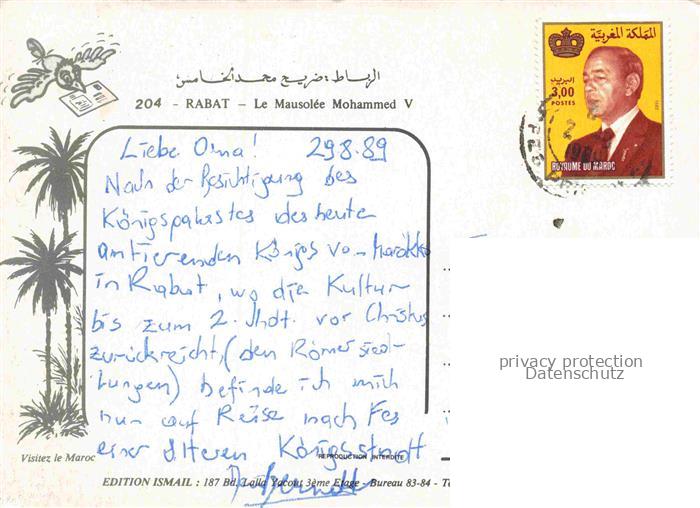 المملكة المغربية
البريد
3,00
POSTES
ROYAUME DU MAROC
الرباط : ضريح محمد الخامس
204 - RABAT – Le Mausolée Mohammed V
Liebe Oma! 29.8.89
Nach der Besichtigung des
Königspalastes des heute
amtierenden Königs von Marokko
in Rabat, wo die Kultur
bis zum 2. Jhdt. vor Christus
zurückreicht, (den Römersied-
lungen) befinde ich mich
nun auf Reise nach Fes
einer älteren Königsstadt
privacy protection
Datenschutz
Visitez le Maroc
REPRODUCTION INTERDITE
EDITION ISMAIL : 187 Bd. Lalla Yacout 3ème Etage - Bureau 83-84 -